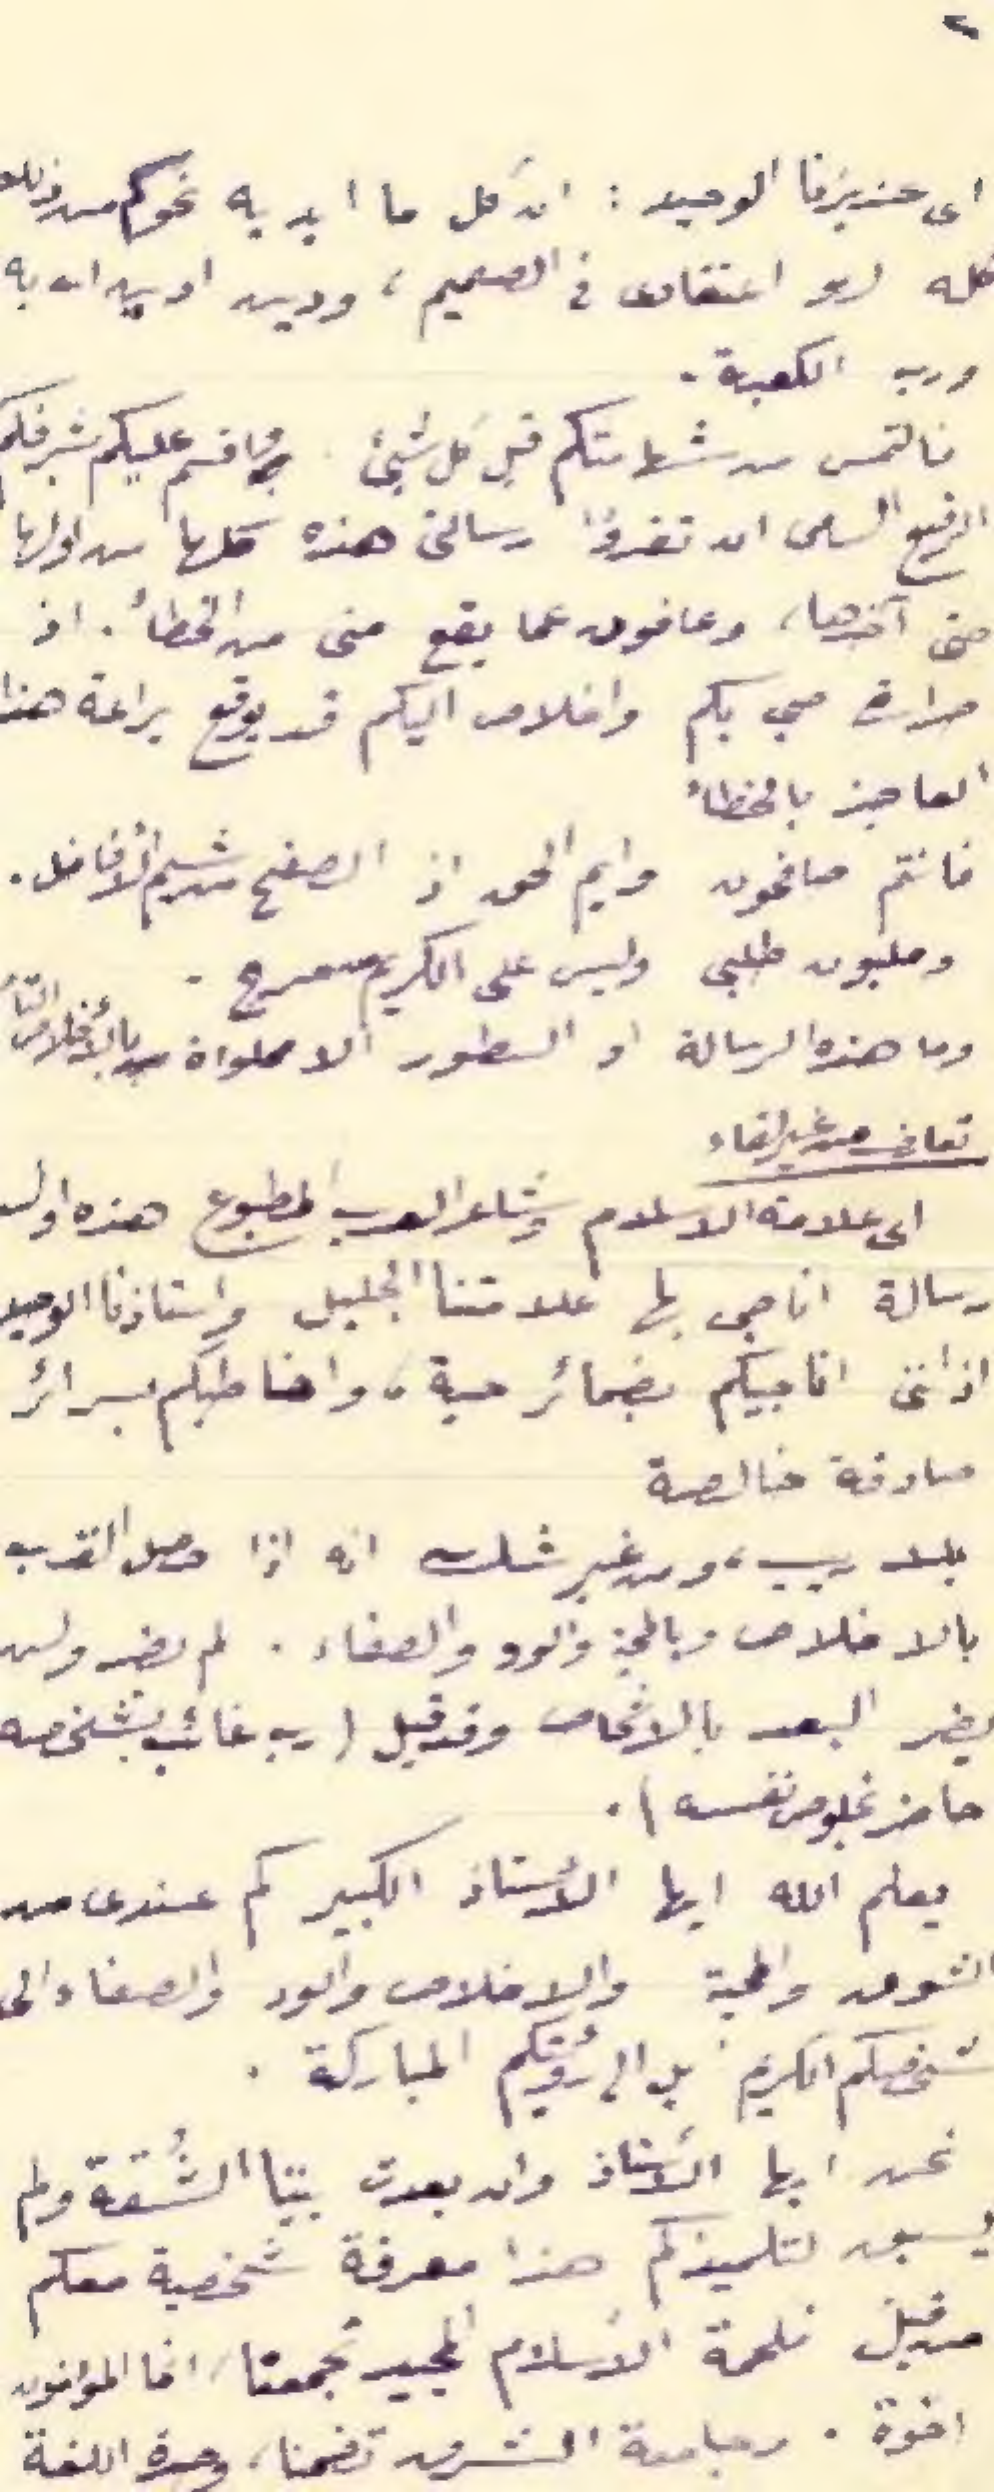 ٢
اي عزيزنا الوحيد : ان كل ما ابديه نحوكم من ذلك
كله لهو اعتقادي في الصميم ، ودين ادين الله به
ورب الكعبة .
فالتمس من شهامتكم قبل كل شيئ . واقسم عليكم بشرفكم
الرفيع السامي ان تقرؤا رسالتي هذه كلها من اولها
حتى آخرها ، وعافون عما يقع مني من الخطأ . اذ
حرارة حبي بكم واخلاصي اليكم قد يوقع يراعة هذا
العاجز بالخطأ
فانتم صافحون وايم الحق اذ الصفح من شيم الأفاضل .
وملبون طلبي وليس على الكريم من حرج .
وما هذه الرسالة او السطور الا مملوأة بالأخلاص
تعارف من غير لقاء
الى علامة الاسلام وشاعر العرب المطبوع هذه اول
رسالة اناجي بها علامتنا الجليل واستاذنا الوحيد
اذ انني اناجيكم بضمائر حية ، واخاطبكم بسرائر
صادقة خالصة
بلا ريب ، ومن غير شك انه اذا حصل القرب
بالاخلاص وبالمحبة والود والصفاء . لم يضر ولن
يضر البعد بالاشخاص وقد قيل ( رب غائب بشخصه
حاضر بخلوص نفسه ) .
يعلم الله ايها الأستاذ الكبير كم عندي من
الشوق والمحبة والاخلاص والود والصفاء الى
شخصكم الكريم بل الى رؤيتكم المباركة .
نحن ايها الأستاذ وان بعدت بيننا الشُقة ولم
يسبق لتلميذكم هذا معرفة شخصية معكم
من قبل فلحمة الاسلام المجيد تجمعنا ، انما المؤمنون
اخوة . وجامعة الشرق تضمنا ، وحدة اللغة